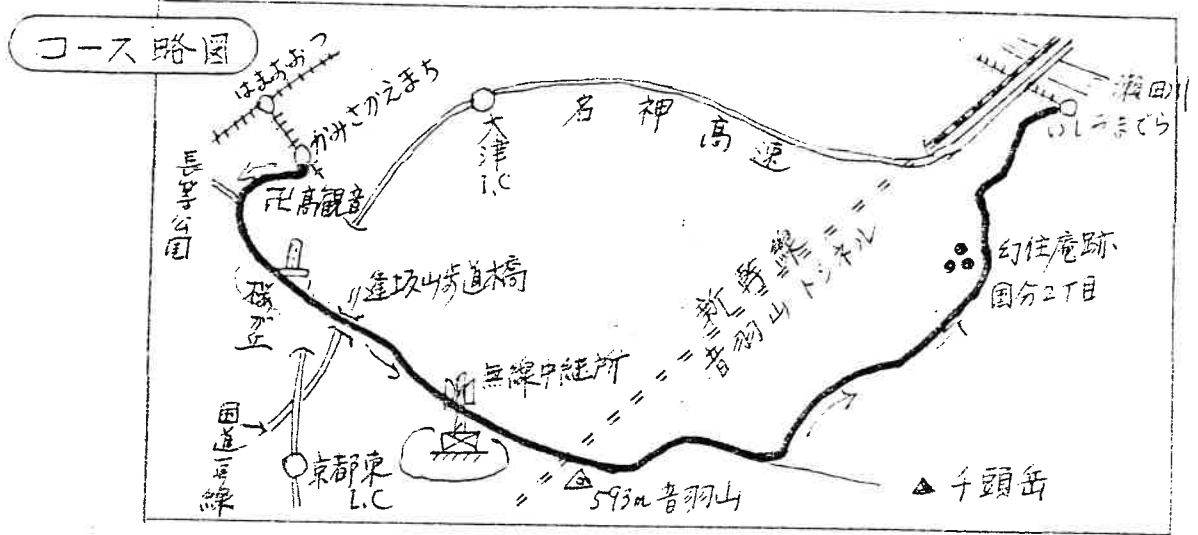 コース略図
はまおおつ
かみさかえまち
大津
I.C
名神高速
瀬田川
いしやまでら
長等公園
卍高観音
逢坂山歩道橋
桜が丘
新幹線
音羽山トンネル
幻住庵跡
国分2丁目
無線中継所
国道一号線
京都東
I.C
593m音羽山
千頭岳